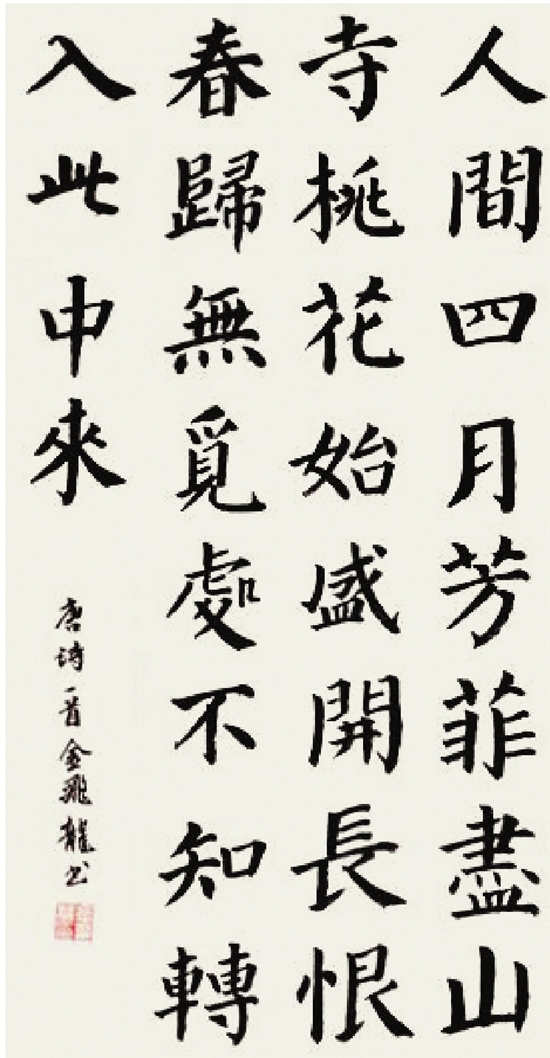 人間四月芳菲盡山
寺桃花始盛開長恨
春歸無覓處不知轉
入此中來
唐詩一首金飛龍書